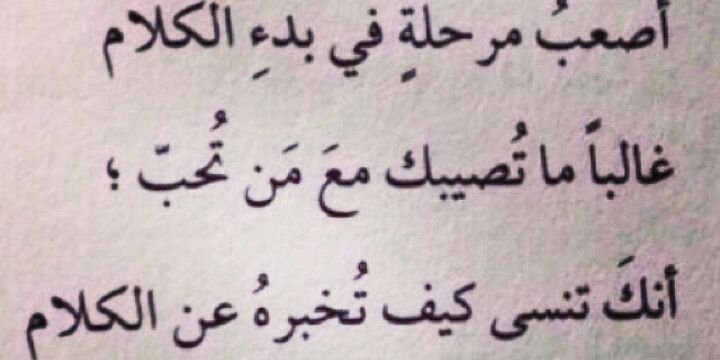 أصعبُ مرحلةٍ في بدءِ الكلام
غالباً ما تُصيبك معَ مَن تُحبّ ؛
أنكَ تنسى كيف تُخبرهُ عن الكلام